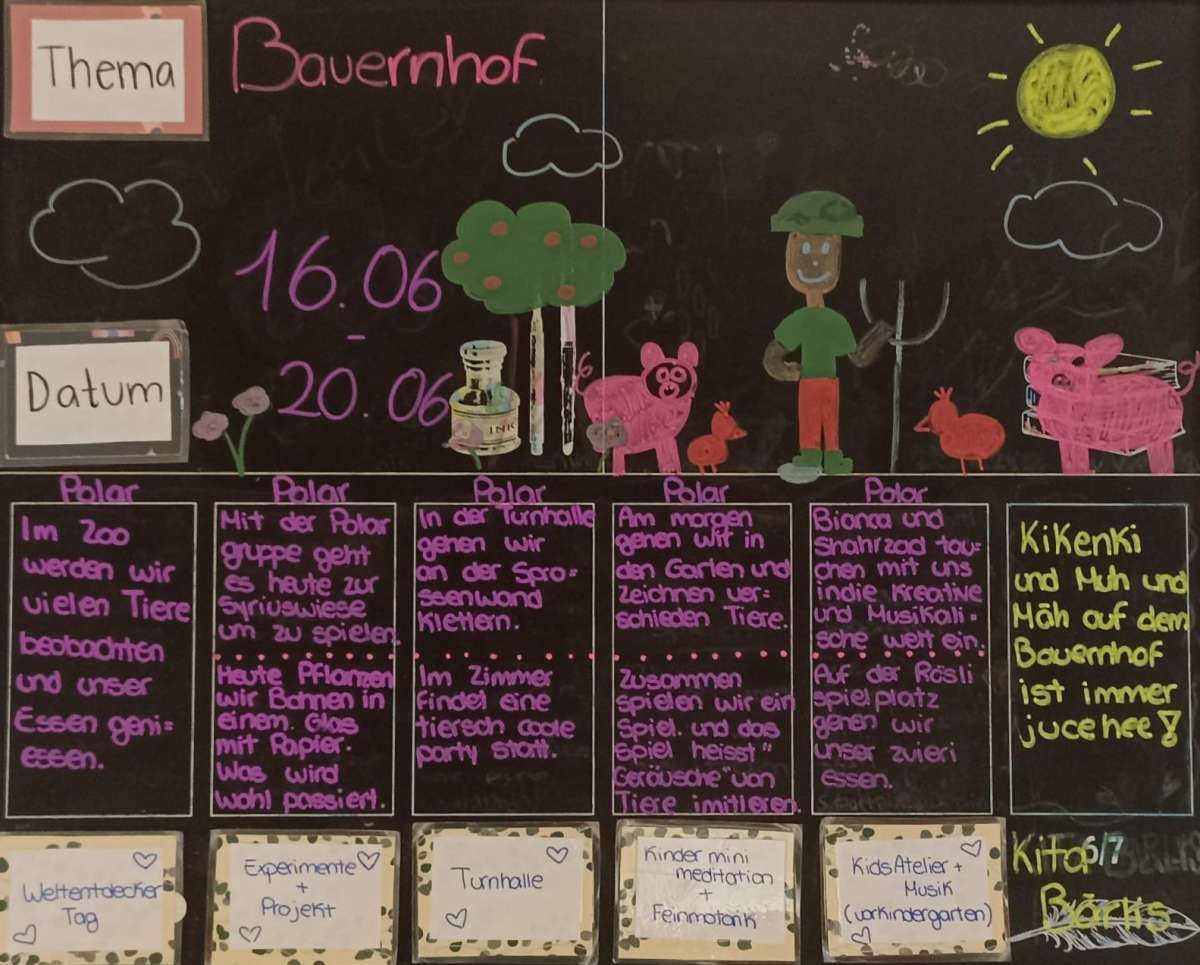 Thema
Bauernhof
16.06
-
20.06
Datum
INK
Polar
Im Zoo
werden wir
vielen Tiere
beobachten
und unser
Essen geni=
essen.
Weltentdecker
Tag
Polar
Mit der Polar
gruppe geht
es heute zur
Syriuswiese
um zu spielen.
Heute Pflanzen
wir Bohnen in
einem. Glas
mit Papier.
Was wird
wohl passiert.
Experimente
+
Projekt
Polar
In der Turnhalle
gehen wir
an der Spro=
ssenwand
Klettern.
Im Zimmer
findel eine
tiersch coole
party statt.
Turnhalle
Polar
Am morgen
gehen wir in
den Garten und
zeichnen ver=
schieden Tiere.
Zusammen
spielen wir ein
Spiel. und das
Spiel heisst"
Geräusche"von
Tiere imitieren.
Kinder mini
meditation
+
Feinmotorik
Polar
Bianca und
Shahrzad tau=
chen mit uns
indie Kreative
und Musikali=
sche welt ein.
Auf der Rösli
spielplatz
gehen wir
unser zvieri
essen.
KidsAtelier +
Musik
(vorkindergarten)
KiKenKi
und Muh und
Mäh auf dem
Bauernhof
ist immer
jucehee!
Kita 6/7
Börks